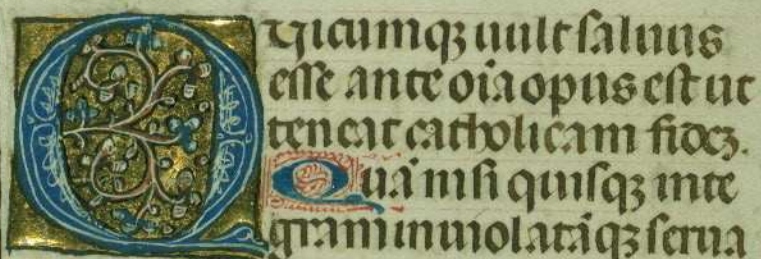 Quicumqꝫ uult saluus
esse ante oīa opus est ut
teneat catholicam fideꝫ.
Quā nisi quisqꝫ inte
gram inuiolatāqꝫ serua